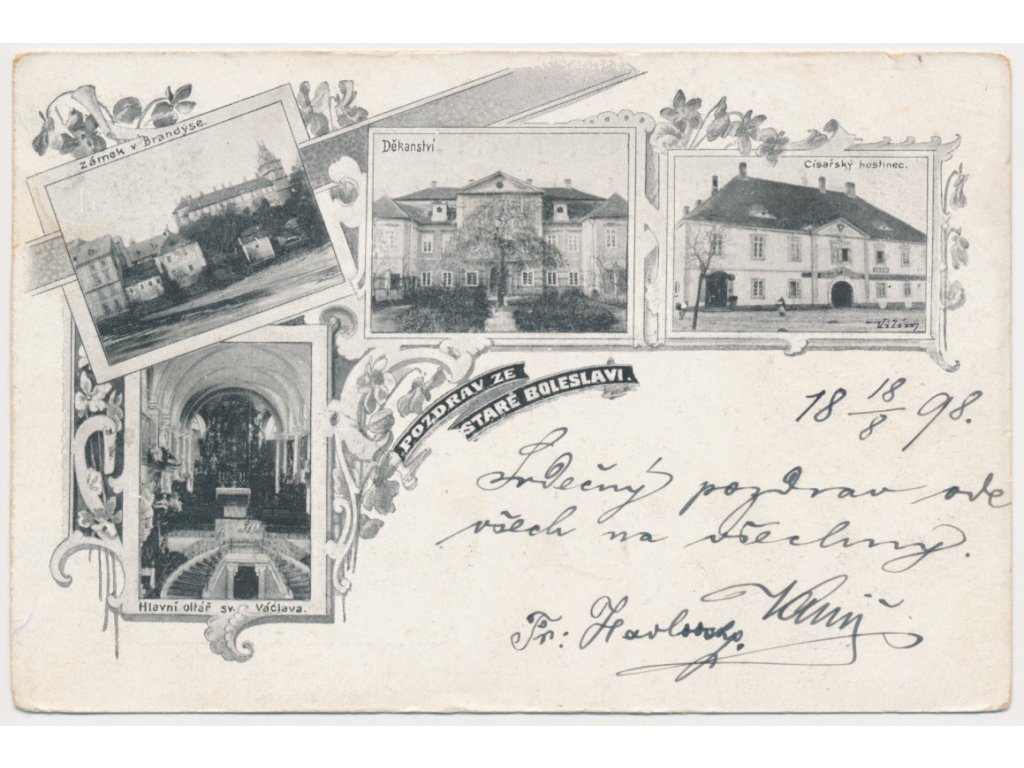 Zámek v Brandýse.
Děkanství.
Císařský hostinec.
Hlavní oltář sv. Václava.
POZDRAV ZE
STARÉ BOLESLAVI.
18 18/8 98.
Srdečný pozdrav ode
všech na všechny.
Fr.